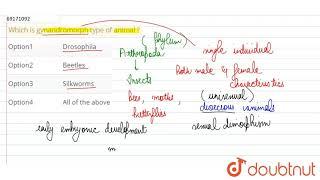 69171092
Which is gynandromorph type of animal?
Option1 Drosophila
Option2 Beetles
Option3 Silkworms
Option4 All of the above
(phylum)
Arthropoda
Insects
bees, moths,
butterflies
single individual
Both male & female
characteristics
(unisexual)
dioecious animals
sexual dimorphism
early embryonic development
m
doubtnut